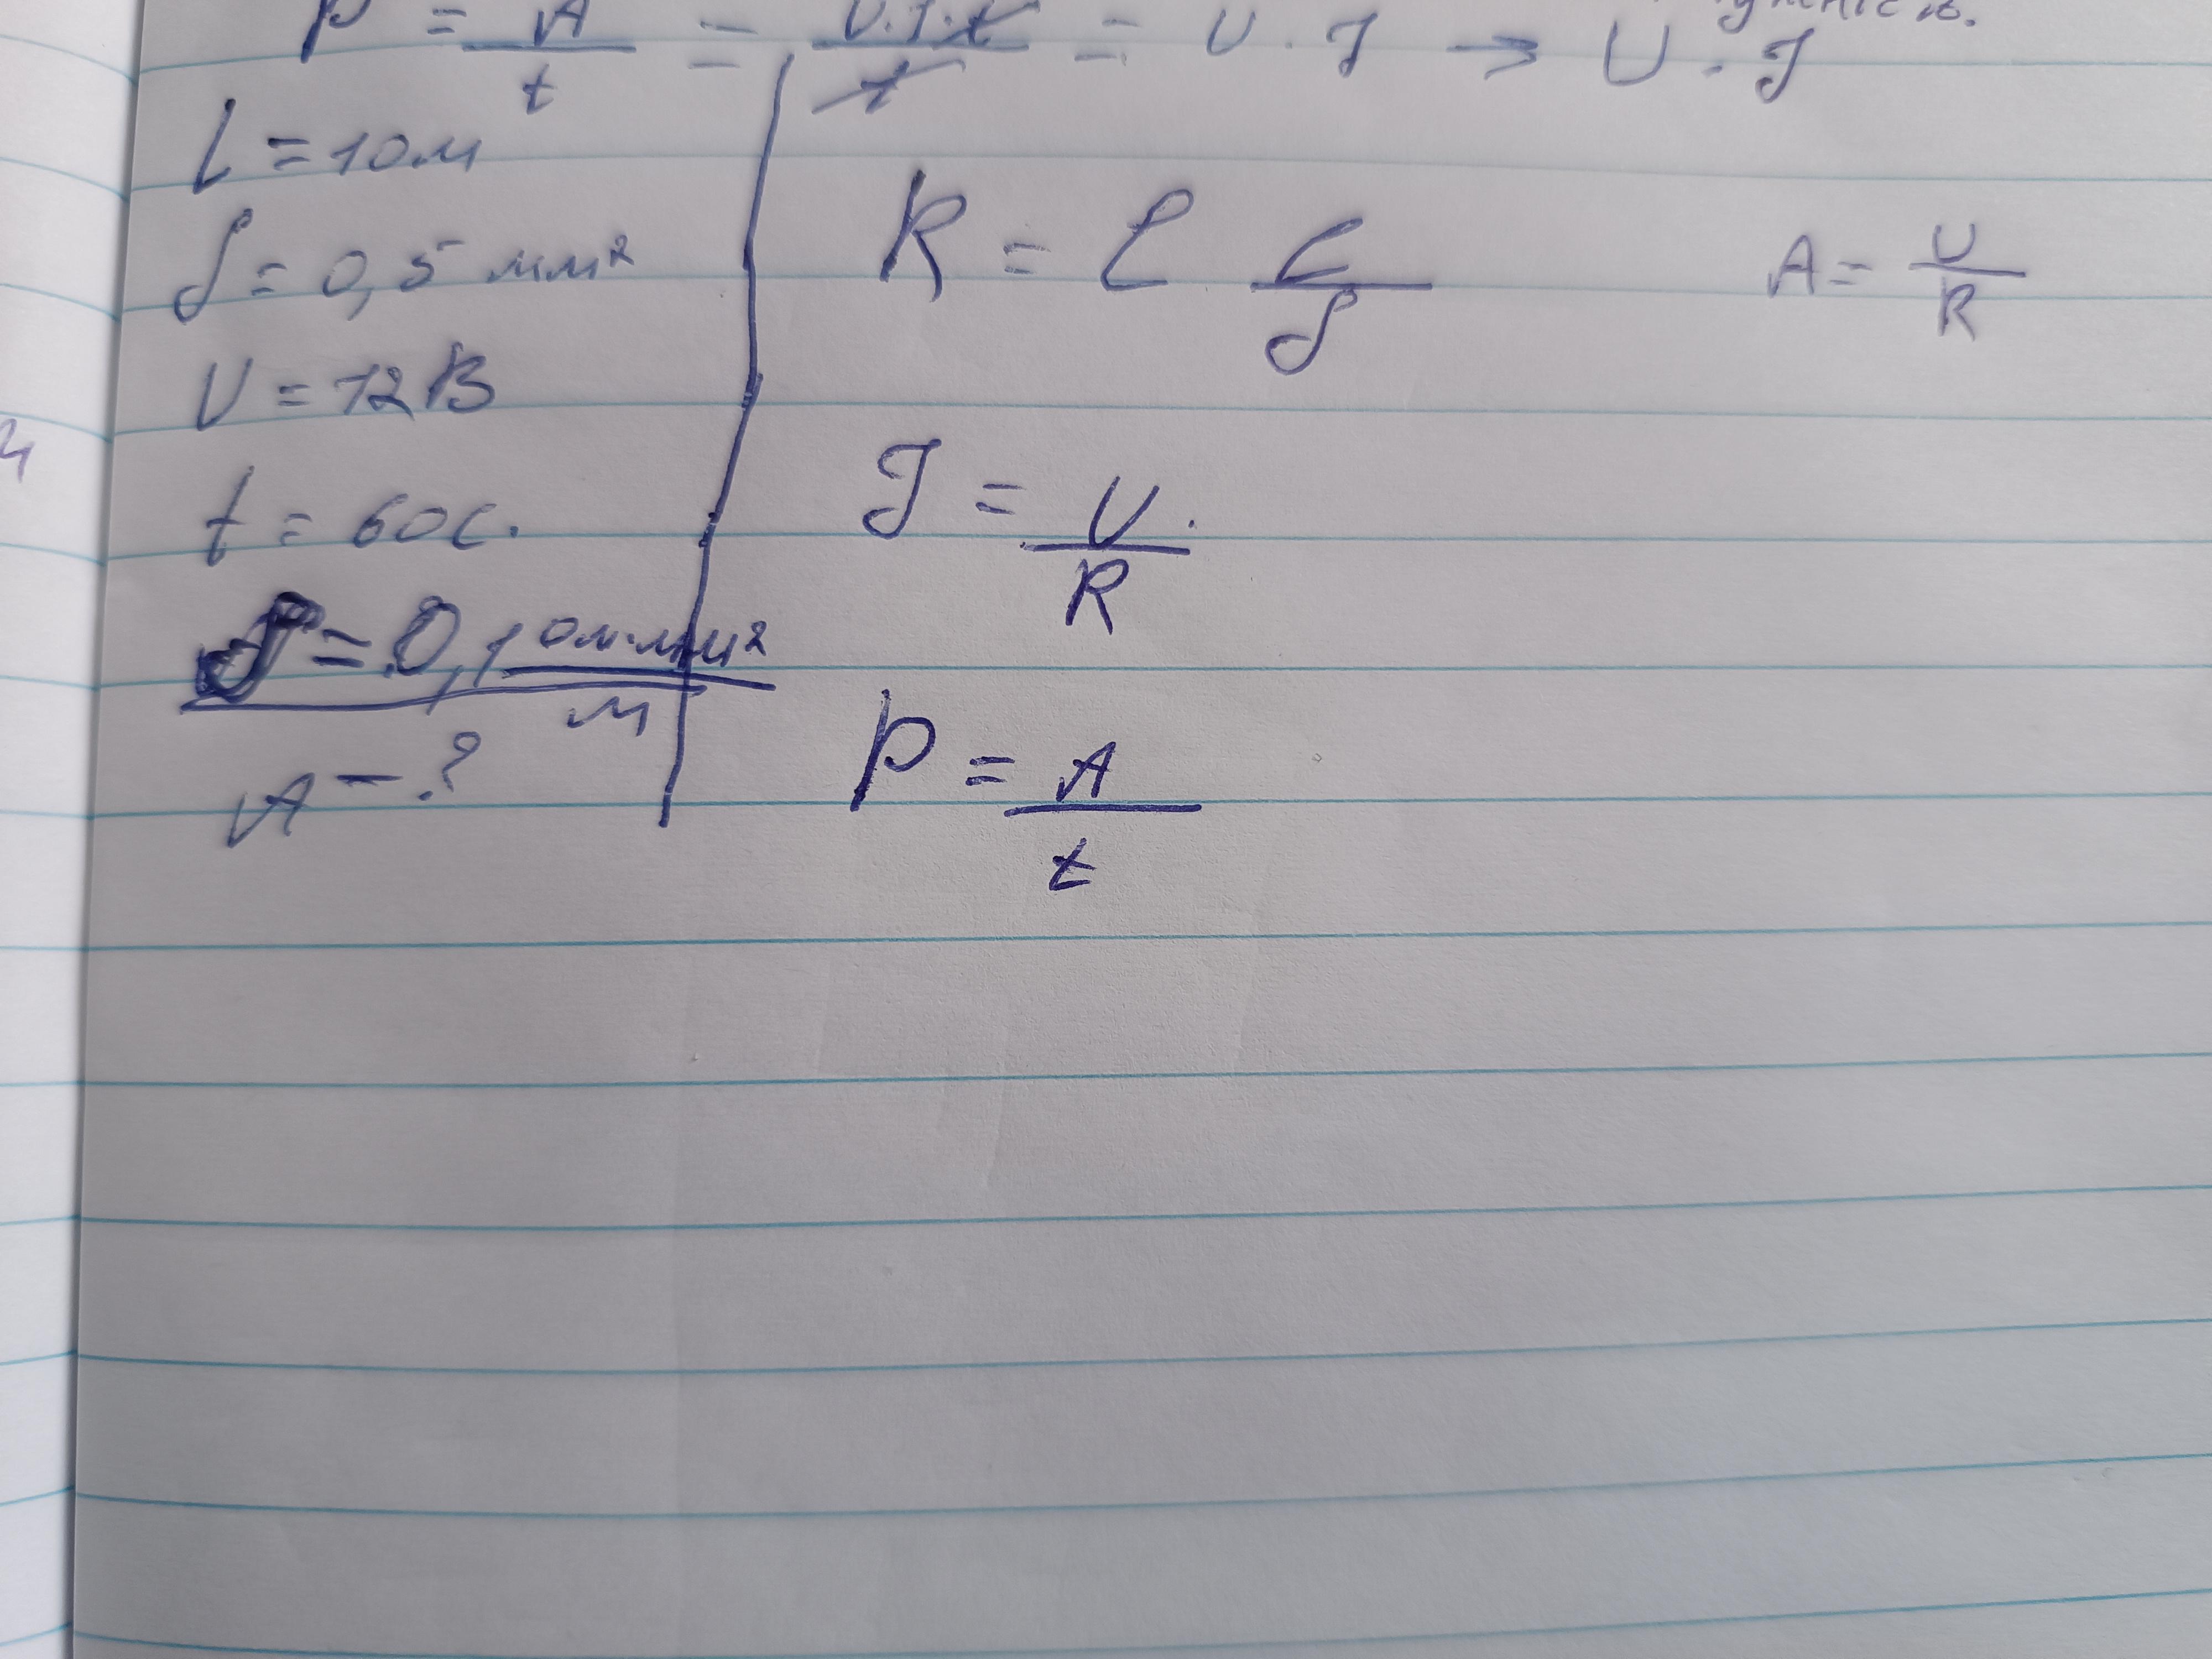 P = A/t = U·I·t/t = U·I → U·I
L = 10м
S = 0,5 мм²
U = 12В
t = 60с.
ρ = 0,1 Ом·мм²/м
A - ?
R = ρ ℓ/S
A = U/R
I = U/R.
P = A/t